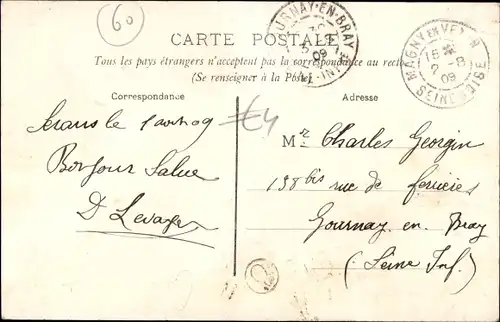 60
CARTE POSTALE
Tous les pays étrangers n'acceptent pas la correspondance au recto
(Se renseigner à la Poste)
Correspondance
le 1 août 09
Bonjour Salue
D Levager
€4
Adresse
Mr Charles Georgin
138 bis rue de
Gournay en Bray
(Seine Inf.)
GOURNAY-EN-BRAY
09
MAGNY EN VEXIN
15
2 -8
09
SEINE ET OISE